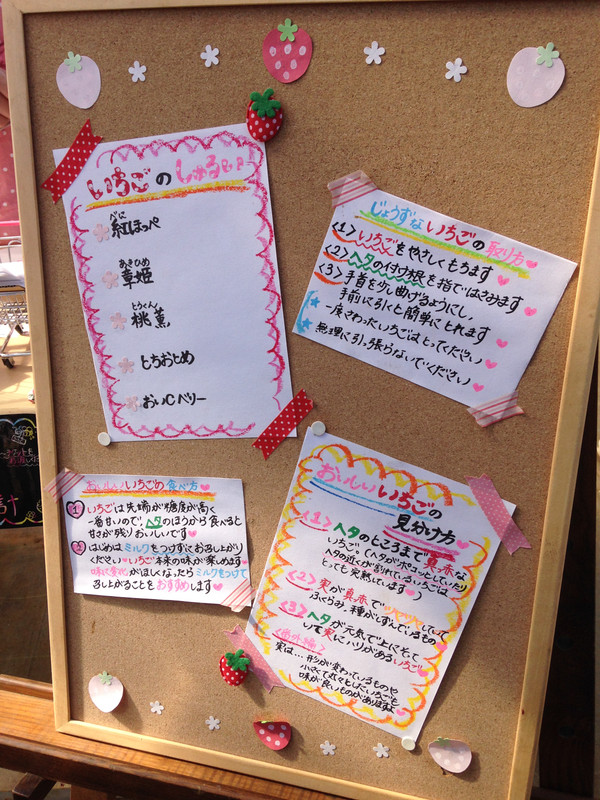 いちごのしゅるい
べに
紅ほっぺ
あきひめ
章姫
とうくん
桃薫
とちおとめ
おいCベリー
じょうずないちごの取り方
<1>いちごをやさしくもちます
<2>ヘタの付け根を指ではさみます
<3>手首を少し曲げるようにし、
手前に引くと簡単にとれます
一度さわったいちごはとってください
無理に引っ張らないでください
おいしいいちごの食べ方
1 いちごは先端が糖度が高く
一番甘いので、ヘタのほうから食べると
甘さが残りおいしいです
2 はじめはミルクをつけずにお召し上がり
ください いちご本来の味が楽しめます
味に変化がほしくなったらミルクをつけて
召し上がることをおすすめします
おいしいいちごの
見分け方
<1>ヘタのところまで真っ赤な
いちご。(ヘタがポコッとしていたり
ヘタの近くが割れているいちごは
とっても完熟しています
<2>実が真赤でツヤツヤしていて
ふくらみ、種がしずんでいるもの
<3>ヘタが元気で上にそって
いて実にハリがあるいちご
<番外編>
実は…形が変わっているものや
小さくて丸々としたいちごも
味が良いものがありますよ